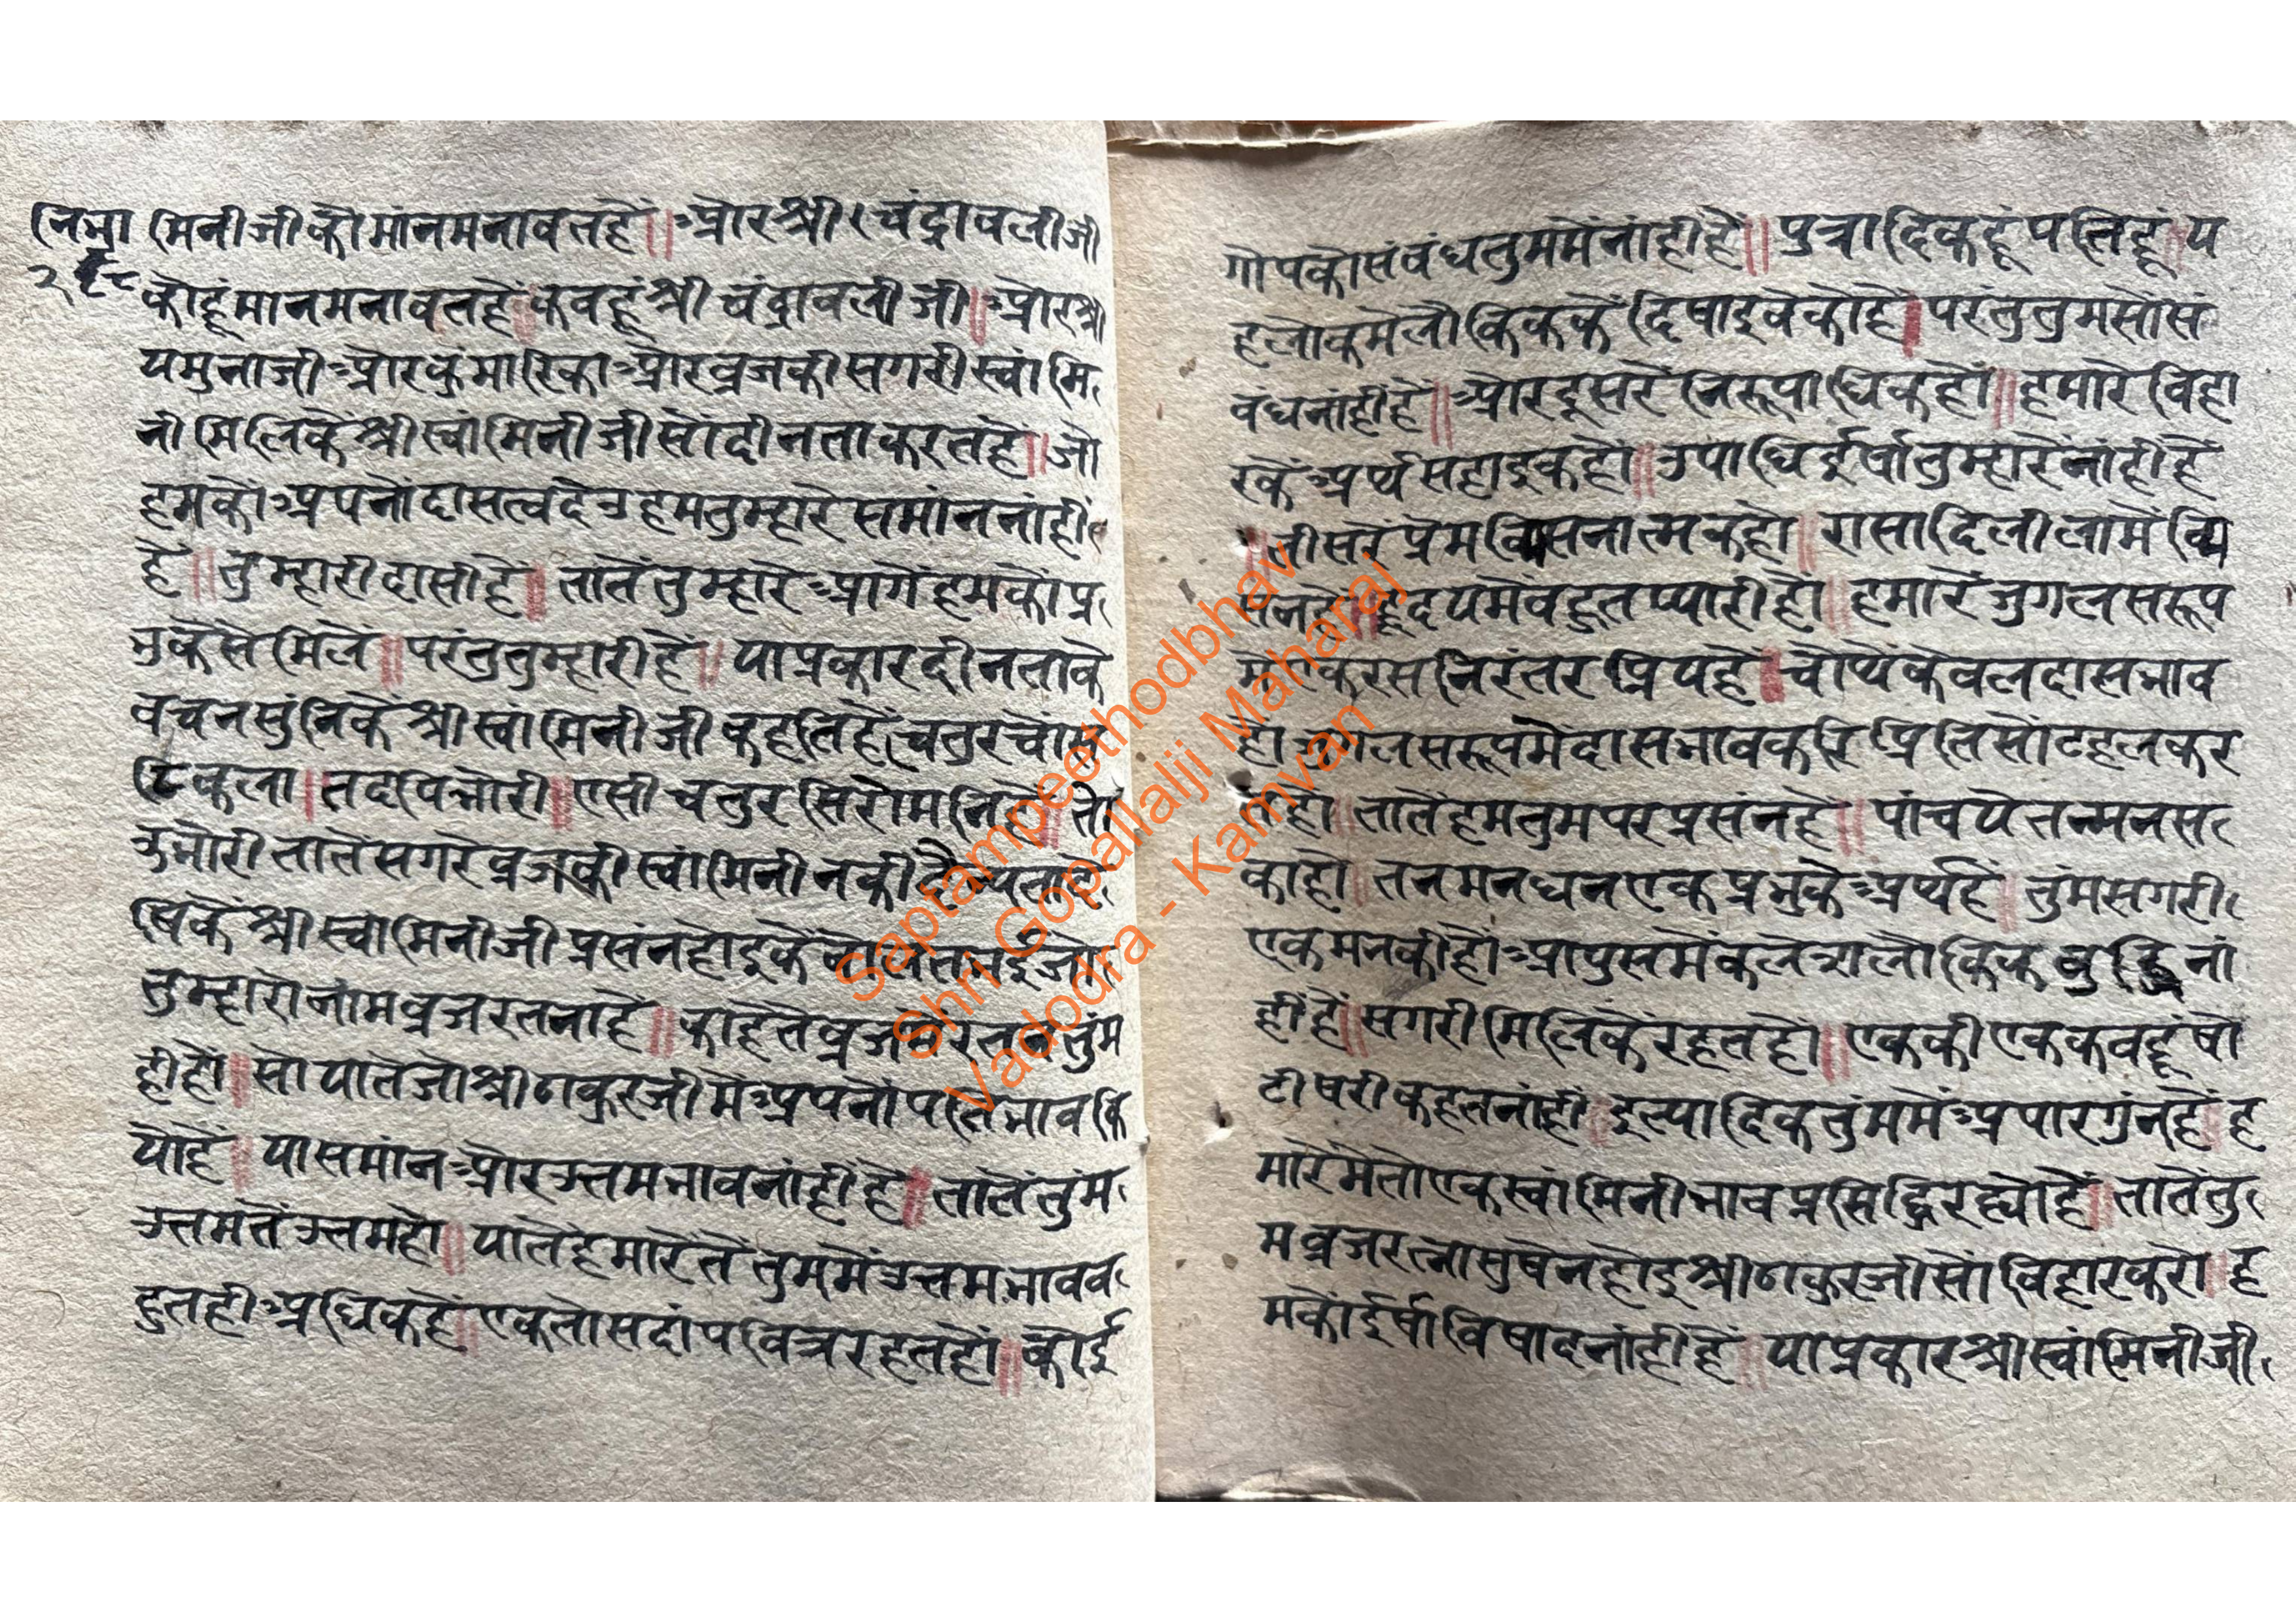 नित्या
२५८
मिनीजीकोमांनमनावतहैं॥औरश्रीचंद्रावलीजी
कोहूंमानमनावतहैकबहूंश्रीचंद्रावलीजी॥औरश्री
यमुनाजीऔरकुंमारिकाऔरव्रजकीसगरीस्वांमि
नीमिलिकैंश्रीस्वांमिनीजीसोंदीनताकरतहै॥जो
हमकोंअपनोंदासत्वदेउहमतुम्हारेसमांननांहीं
हैं॥तुम्हारीदासीहैं॥तातेंतुम्हारेआगेंहमकोंप्र
भुकैसेंमिले॥परंतुतुम्हारीहैं॥याप्रकारदीनताके
वचनसुंनिकेंश्रीस्वांमिनीजीकहतिहैंचतुरचोंस
ठिकला॥तदपिभोरी॥एसीचतुरसिरोमनिहै॥तो
उभोरीतातेंसगरेव्रजकीस्वांमिनीनकी
षिकेंश्रीस्वांमिनीजीप्रसंनहोइकें
तुम्हारोनांमव्रजरतनाहें॥काहेतेव्रज
हीहों॥सोयातेजोश्रीठाकुरजीमेंअपनोंपतिभावकि
योहें॥यासमांनऔरउत्तमभावनांहींहे॥तातेंतुंम
उत्तमतेंउत्तमहो॥यातेंहमारेतेंतुममेंउत्तमभावव
हुतहीअधिकहें॥एकतोसदांपवित्ररहतहों॥कोई
गोपकोसंबंधतुममेंनांहींहैं॥पुत्रादिकहूंपतिहूंय
हलोकमेलौकिककेंदिषाइवेकोहे॥परंतुतुमसोंसं
बंधनांहींहैं॥औरदूसरेंनिरूपाधिकहों॥हमारेविहा
रकेंअर्थसहाइकहों॥उपाधिईर्षातुम्हारेंनांहींहैं
॥तीसरेंप्रेम हों॥रासादिलीलामें
हृदयमेंवहुतप्यारीहो॥हमारेंजुगलसरूप
मेंएकरसनिरंतरप्रियहै॥चोथेंकेवलदासभाव
हों जुगलसरूपमेंदासभावकरिप्रितिसोंटहलकर
तहों॥तातेंहमतुमपरप्रसंनहै॥पांचयेतन्मनस
काहो॥तनमनधनएकप्रभुकेअर्थहें॥तुंमसगरी
एकमनकीहोंआपुसमेंकलेशलौकिकबुद्धिनां
हींहैं॥सगरीमिलिकेंरहतहों॥एककीएककबहूंषो
टीषरीकहतनांहीं॥इत्यादिकतुंममेंअपारगुंनहैं॥ह
मारेमेंतोएकस्वांमिनीभावप्रसिद्धिरह्योहै॥तातेंतु
मव्रजरत्नासुषेनहोइश्रीठाकुरजीसोंविहारकरो॥ह
मकोंईर्षाविषादनांहींहैं॥याप्रकारश्रीस्वांमिनीजी
Saptampeethodbhav
Shri Gopallalji Maharaj
Vadodra - Kamvan